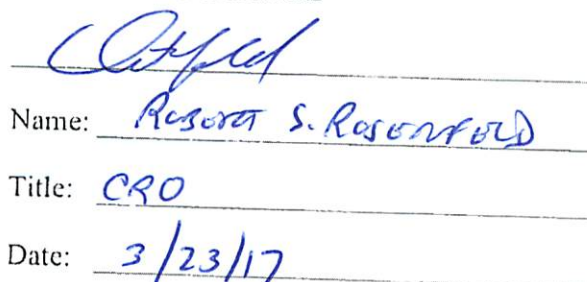 Name: Robert S. Rosenfeld
Title: CRO
Date: 3/23/17